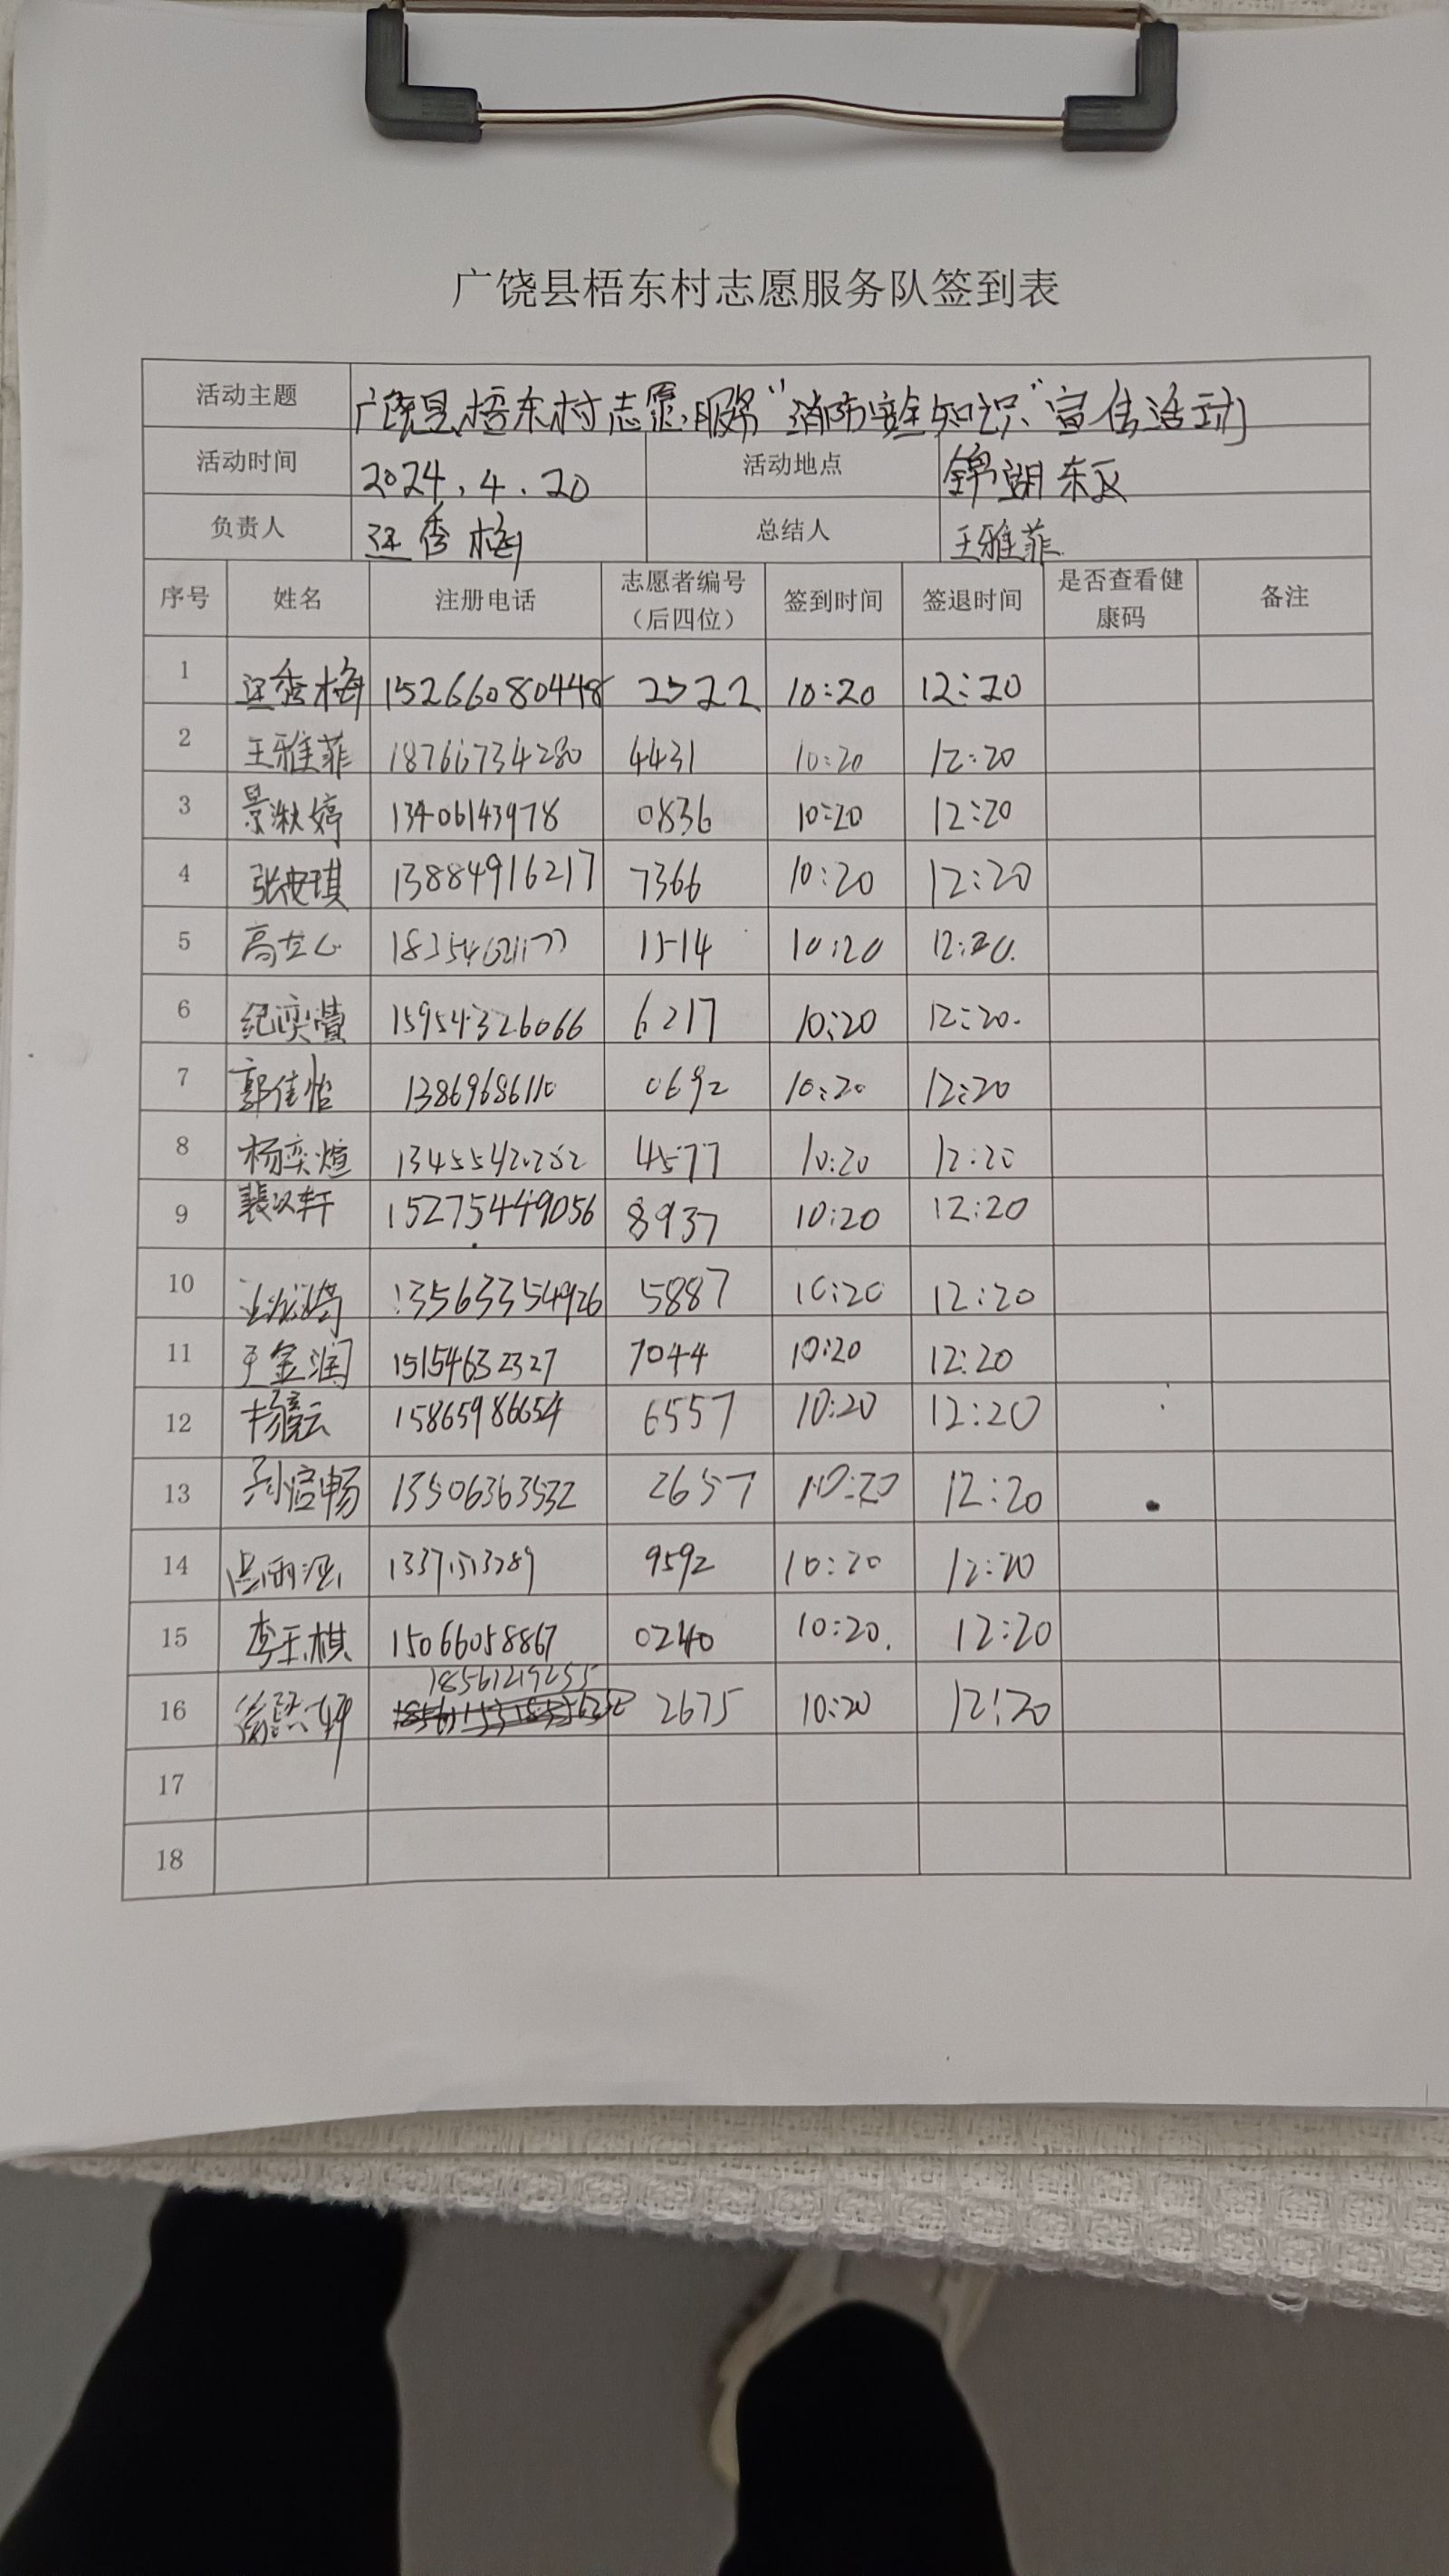 广饶县梧东村志愿服务队签到表
活动主题 广饶县梧东村志愿服务“消防安全知识”宣传活动
活动时间 2024.4.20 活动地点 锦湖东区
负责人 秀梅 总结人 王雅菲
序号 姓名 注册电话 志愿者编号（后四位） 签到时间 签退时间 是否查看健康码 备注
1 秀梅 15266080448 2522 10:20 12:20
2 王雅菲 18766734280 4431 10:20 12:20
3 景淑婷 13406143978 0836 10:20 12:20
4 张安琪 13884916217 7366 10:20 12:20
5 高 1514 10:20 12:20.
6 纪奕萱 15954326066 6217 10:20 12:20.
7 郭佳怡 13869686110 0692 10:20 12:20
8 杨奕煊 4577 10:20 12:20
9 裴以轩 15275449056 8937 10:20 12:20
10 13563354926 5887 10:20 12:20
11 金润 15154632327 7044 10:20 12:20
12 杨 云 15865986654 6557 10:20 12:20
13 孙 畅 13506363532 2657 10:20 12:20
14 雨 9592 10:20 12:20
15 李玉棋 15066058867 0240 10:20. 12:20
16 徐 18561219255 2675 10:20 12:20
17
18